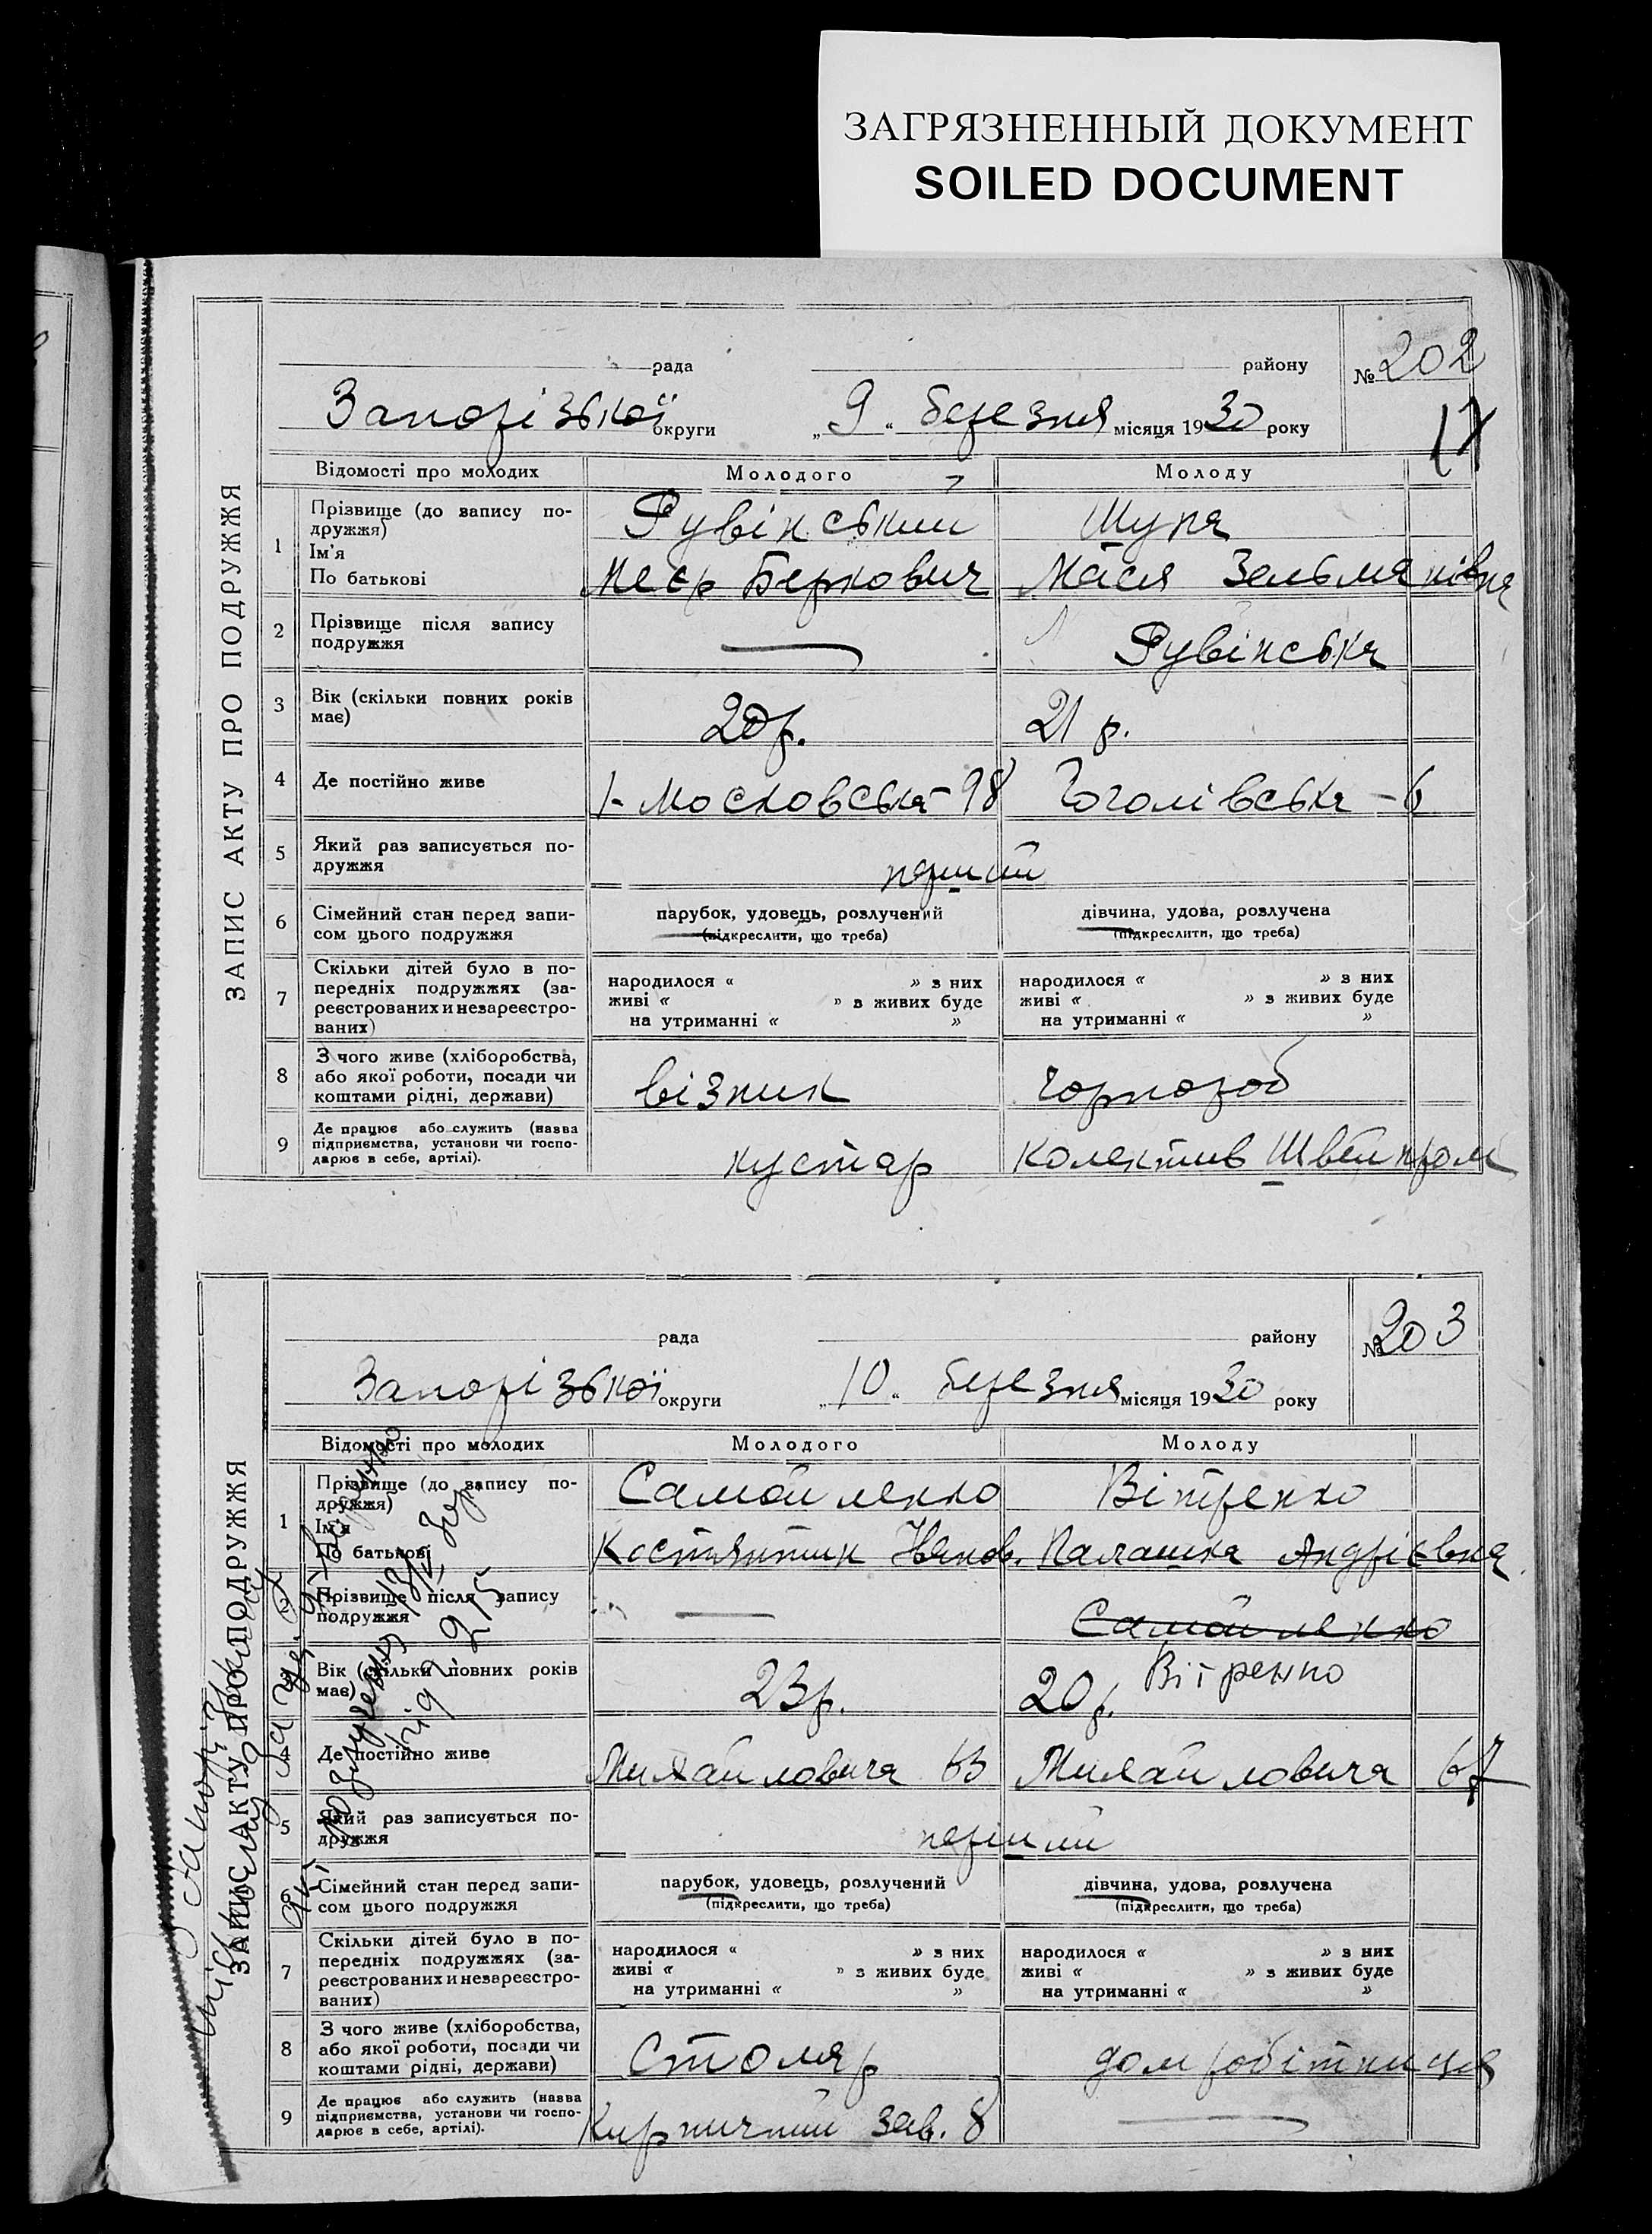 ЗАГРЯЗНЕННЫЙ ДОКУМЕНТ
SOILED DOCUMENT
ЗАПИС АКТУ ПРО ПОДРУЖЖЯ
рада району № 202
Запорізької округи „ 9 “ березня місяця 1930 року
17
Відомості про молодих Молодого Молоду
1 Прізвище (до запису подружжя) Рувінський Шупя
Ім'я
По батькові Меєр Беркович Мася Зельманівна
2 Прізвище після запису подружжя — Рувінська
3 Вік (скільки повних років має) 20 р. 21 р.
4 Де постійно живе 1-Московська-98 Гоголівська-6
5 Який раз записується подружжя перший
6 Сімейний стан перед записом цього подружжя парубок, удовець, розлучений дівчина, удова, розлучена
(підкреслити, що треба) (підкреслити, що треба)
7 Скільки дітей було в попередніх подружжях (зареєстрованих и незареєстрованих) народилося « » з них народилося « » з них
живі « » з живих буде живі « » з живих буде
на утриманні « » на утриманні « »
8 З чого живе (хліборобства, або якої роботи, посади чи коштами рідні, держави) візник чорнороб
9 Де працює або служить (назва підприємства, установи чи господарює в себе, артілі). кустар колектив Швейпром
ЗАПИС АКТУ ПРО ПОДРУЖЖЯ
рада району № 203
Запорізької округи „ 10 “ березня місяця 1930 року
Відомості про молодих Молодого Молоду
1 Прізвище (до запису подружжя) Самойленко Вітренко
Ім'я
По батькові Костянтин Іванов. Палашка Андрієвна
2 Прізвище після запису подружжя — Самойленко
Вітренко
3 Вік (скільки повних років має) 23 р. 20 р.
4 Де постійно живе Михайловича 63 Михайловича 67
5 Який раз записується подружжя перший
6 Сімейний стан перед записом цього подружжя парубок, удовець, розлучений дівчина, удова, розлучена
(підкреслити, що треба) (підкреслити, що треба)
7 Скільки дітей було в попередніх подружжях (зареєстрованих и незареєстрованих) народилося « » з них народилося « » з них
живі « » з живих буде живі « » з живих буде
на утриманні « » на утриманні « »
8 З чого живе (хліборобства, або якої роботи, посади чи коштами рідні, держави) Столяр домробітниця
9 Де працює або служить (назва підприємства, установи чи господарює в себе, артілі). Кирпичний зав. 8 —